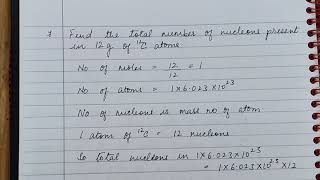 7 Find the total number of nucleons present
in 12 g of ¹²C atoms
No of moles = 12/12 = 1
No of atoms = 1 × 6.023 × 10²³
No of nucleons is mass no of atom
1 atom of ¹²C = 12 nucleons
So total nucleons in 1 × 6.023 × 10²³
= 1 × 6.023 × 10²³ × 12